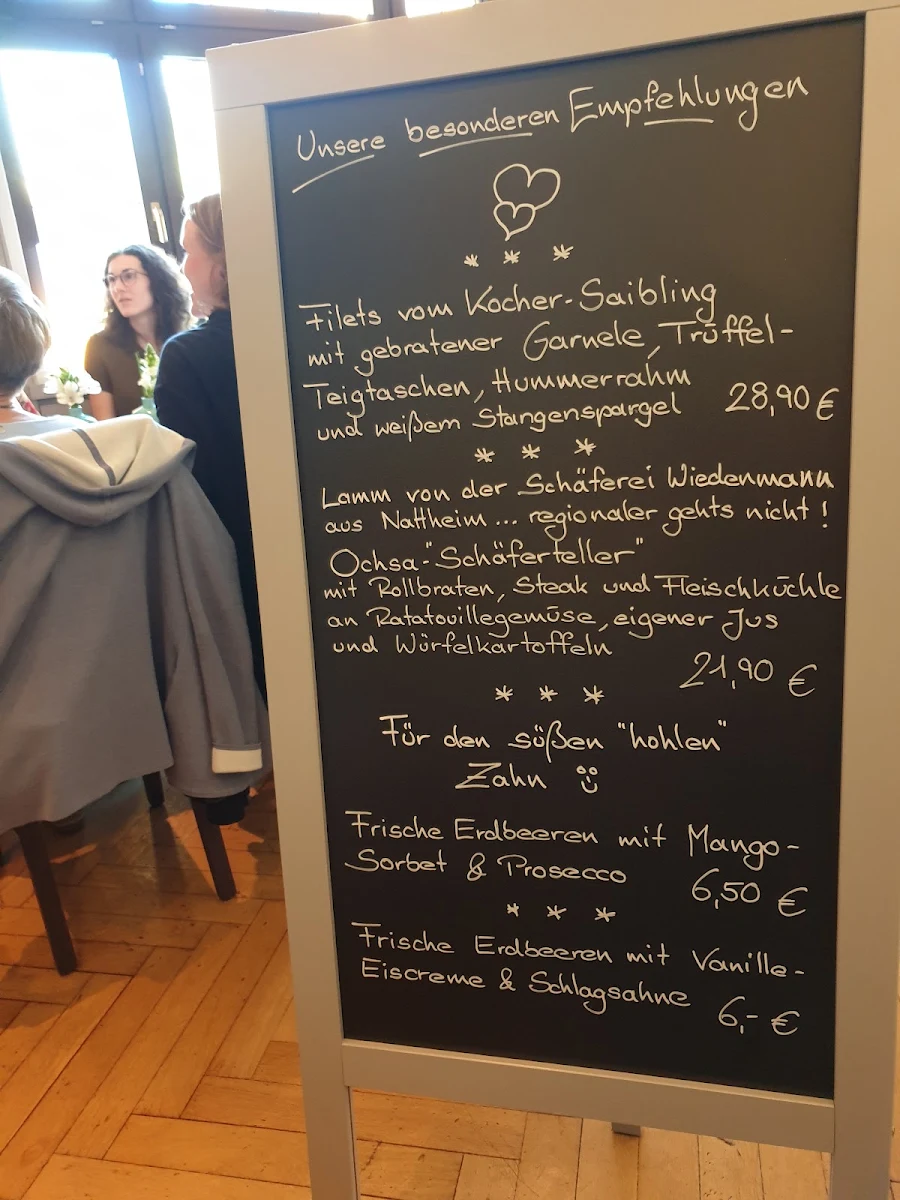 Unsere besonderen Empfehlungen
* * *
Filets vom Kocher-Saibling
mit gebratener Garnele, Trüffel-
Teigtaschen, Hummerrahm
und weißem Stangenspargel 28,90 €
* * *
Lamm von der Schäferei Wiedenmann
aus Nattheim... regionaler gehts nicht!
Ochsa-"Schäferteller"
mit Rollbraten, Steak und Fleischküchle
an Ratatouillegemüse, eigener Jus
und Würfelkartoffeln
21,90 €
* * *
Für den süßen "hohlen"
Zahn
Frische Erdbeeren mit Mango-
Sorbet & Prosecco 6,50 €
* * *
Frische Erdbeeren mit Vanille-
Eiscreme & Schlagsahne
6,- €